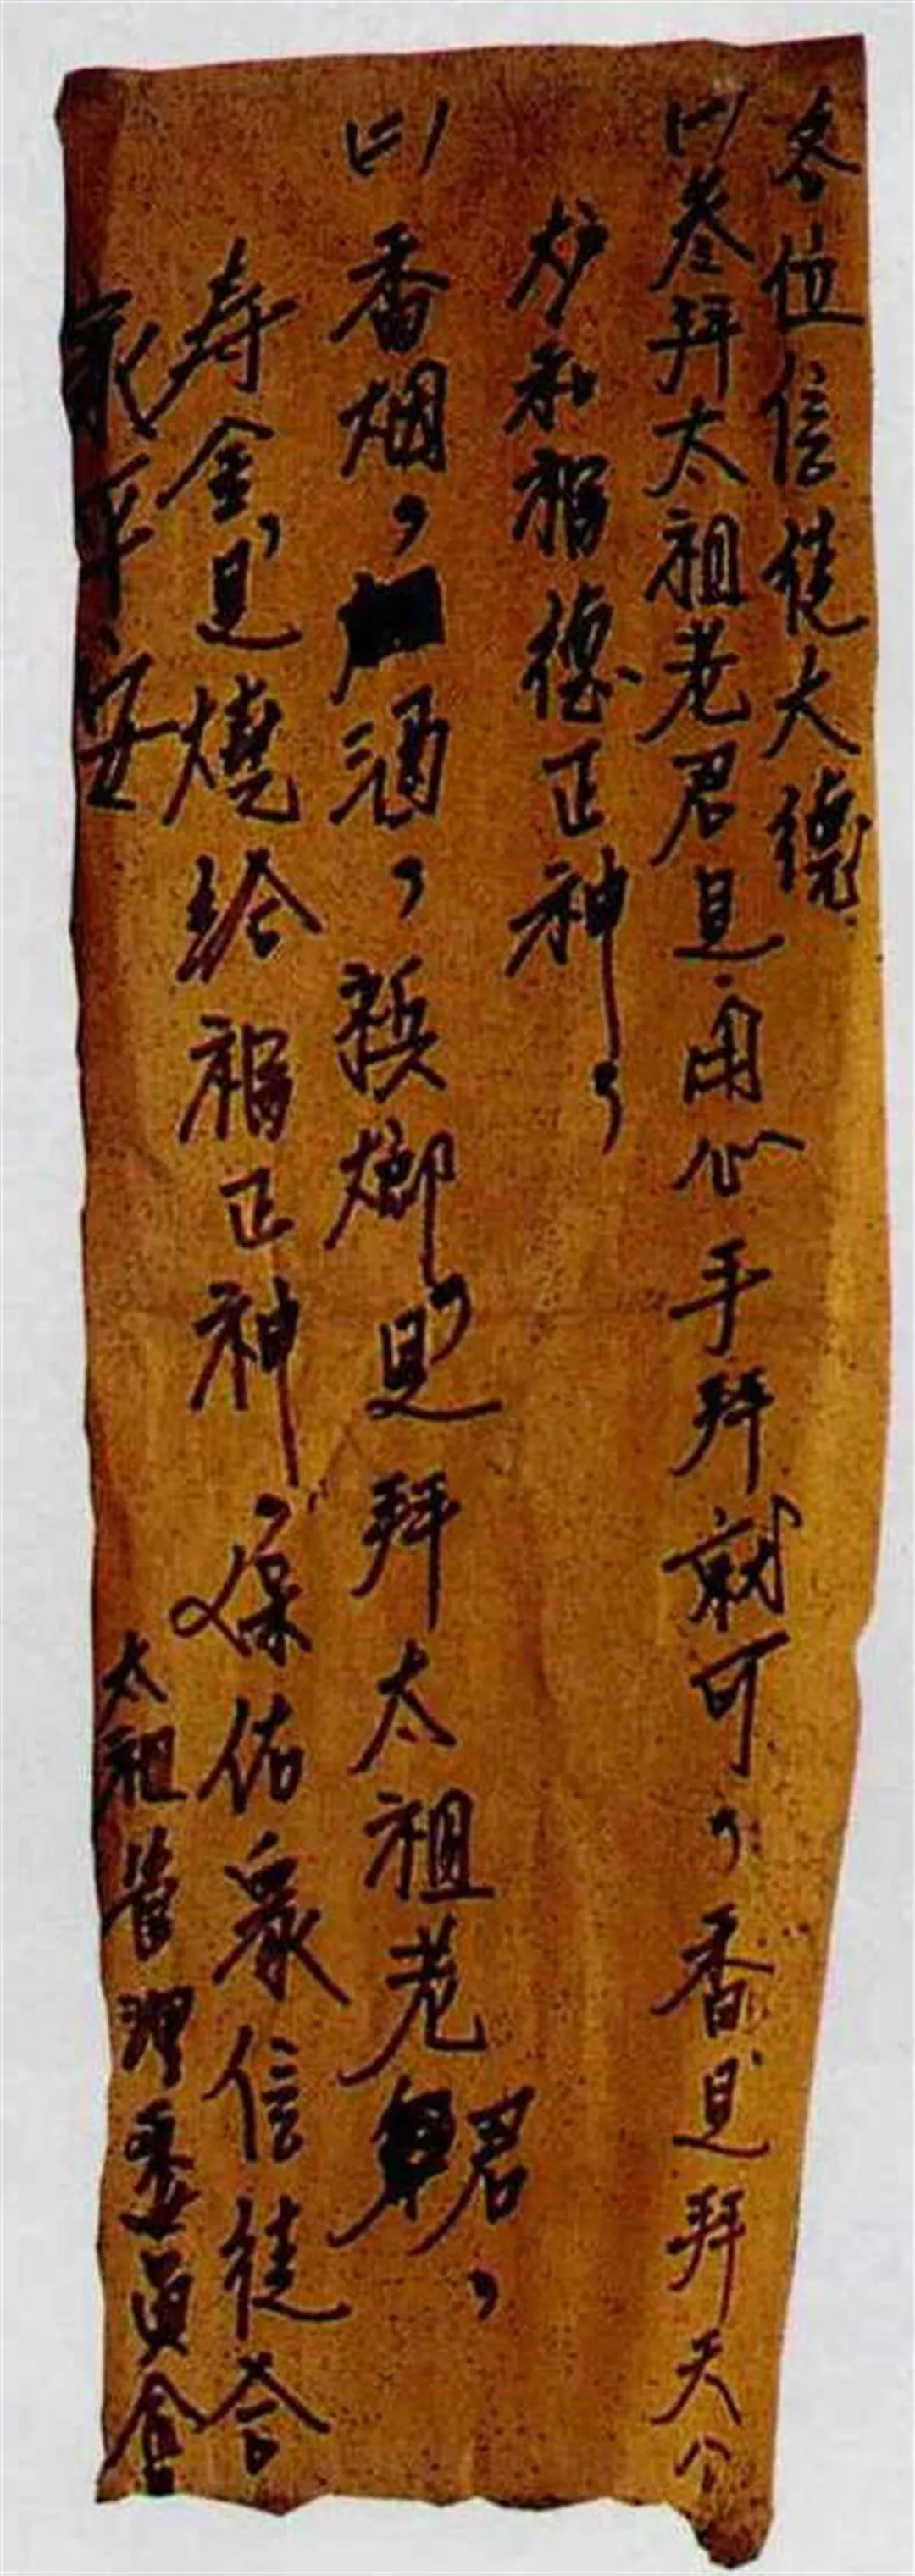 各位信徒大德
(一)參拜太祖老君是用心手拜就可，香是拜天公
炉和福德正神，
(二)香烟，酒，檳榔，是拜太祖老君，
寿金，是燒給福正神，保佑眾信徒合
家平安
太祖管理委員会